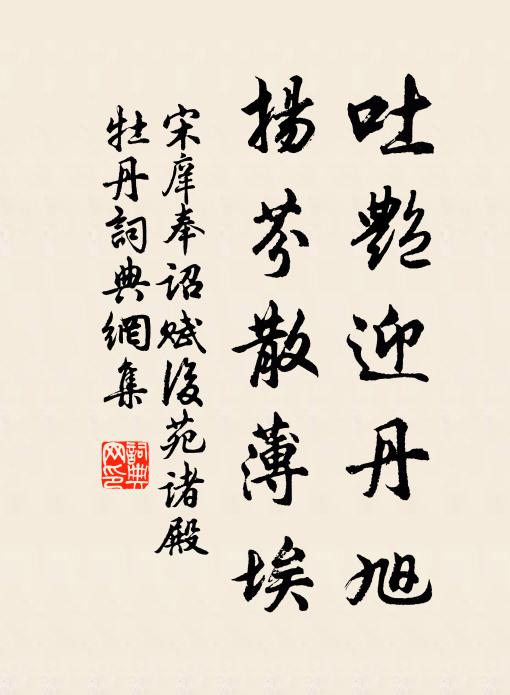 吐艷迎丹旭
揚芬散薄埃
宋庠奉詔賦後苑諸殿
牡丹詞典網集
詞典網印